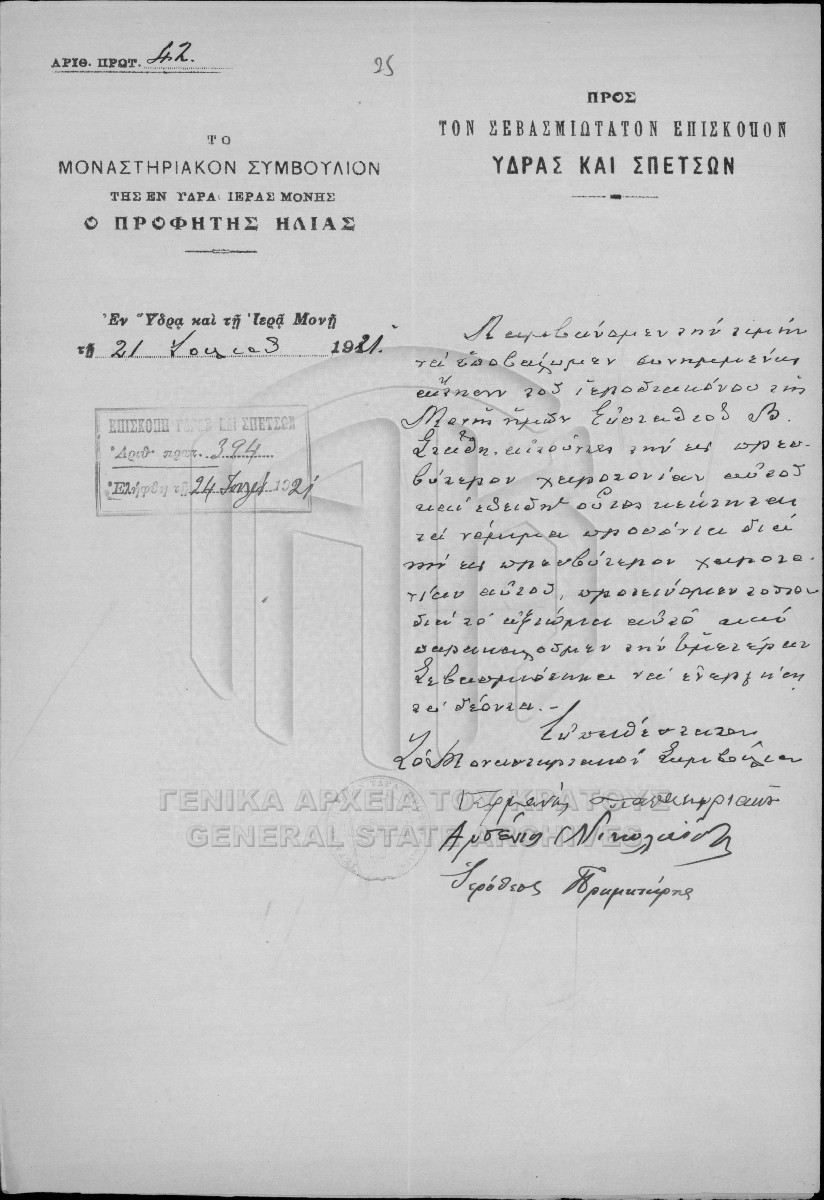 ΑΡΙΘ. ΠΡΩΤ. 42.
25
ΤΟ
ΜΟΝΑΣΤΗΡΙΑΚΟΝ ΣΥΜΒΟΥΛΙΟΝ
ΤΗΣ ΕΝ ΥΔΡΑ ΙΕΡΑΣ ΜΟΝΗΣ
Ο ΠΡΟΦΗΤΗΣ ΗΛΙΑΣ
Ἐν Ὕδρᾳ καὶ τῇ Ἱερᾷ Μονῇ
τῇ 21 Ἰουλίου 1921.
ΕΠΙΣΚΟΠΗ ΥΔΡΑΣ ΚΑΙ ΣΠΕΤΣΩΝ
Ἀριθ. πρωτ. 394
Ἐλήφθη τῇ 24 1921
ΠΡΟΣ
ΤΟΝ ΣΕΒΑΣΜΙΩΤΑΤΟΝ ΕΠΙΣΚΟΠΟΝ
ΥΔΡΑΣ ΚΑΙ ΣΠΕΤΣΩΝ
Λαμβάνομεν τὴν τιμὴν
νὰ ὑποβάλωμεν συνημμένως
αἴτησιν τοῦ ἱεροδιακόνου τῆς
Μονῆς ἡμῶν Εὐσταθίου Β.
Στάθη αἰτοῦντος τὴν εἰς πρεσ-
βύτερον χειροτονίαν αὐτοῦ
καὶ ἐπειδὴ οὗτος κέκτηται
τὰ νόμιμα προσόντα διὰ
τὴν εἰς πρεσβύτερον χειροτο-
νίαν αὐτοῦ, προτείνομεν τοῦτον
διὰ τὸ ἀξίωμα αὐτὸ καὶ
παρακαλοῦμεν τὴν Ὑμετέραν
Σεβασμιότητα νὰ ἐνεργήσῃ
τὰ δέοντα.-
Εὐπειθέστατον
Τὸ Μοναστηριακὸν Συμβούλιον
Γερμανὸς
Ἀρσένιος Νικολαΐδης
Ἱερόθεος
ΓΕΝΙΚΑ ΑΡΧΕΙΑ ΤΟΥ ΚΡΑΤΟΥΣ
GENERAL STATE ARCHIVES